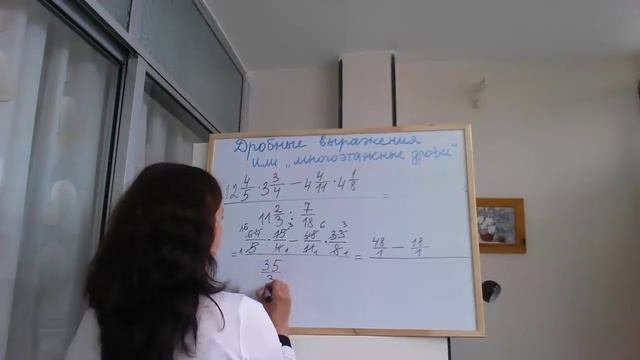 Дробные выражения
или „многоэтажные дроби"
12 4/5 · 3 3/4 − 4 4/11 · 4 1/8 =
11 2/3 : 7/18
16 3 6 3
= 64/5 · 15/4 − 48/11 · 33/8 = 48/1 − 18/1
1 1 1 1
35/3